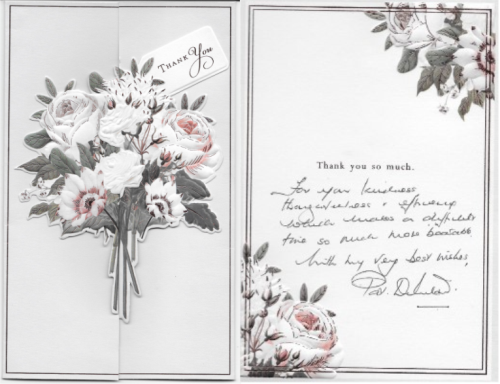 Thank You
Thank you so much.
For your kindness
thoughtfulness & efficiency
which makes a difficult
time so much more bearable.
With my very best wishes,